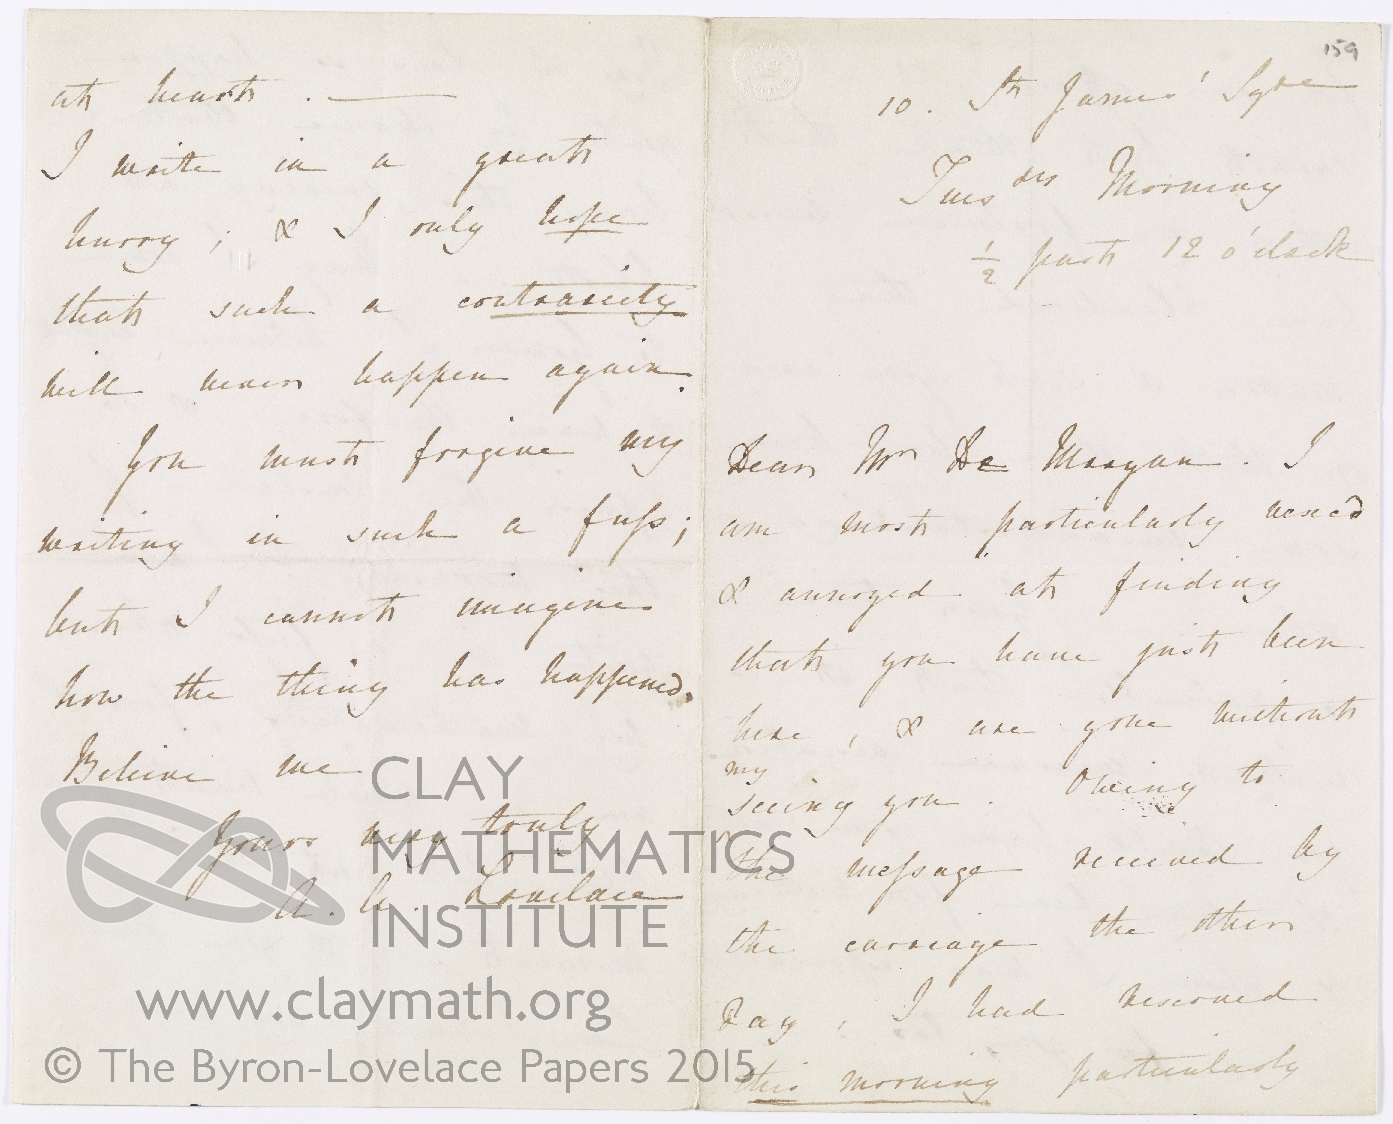 159
10. St James' Sqre
Tuesday Morning
1/2 past 12 o'clock
Dear Mr De Morgan. I
am most particularly vexed
& annoyed at finding
that you have just been
here, & are gone without
my
seeing you. Owing to
the message received by
the carriage the other
day, I had reserved
this morning particularly
at heart. —
I write in a great
hurry; & I only hope
that such a contrariety
will never happen again.
You must forgive my
writing in such a fuss;
but I cannot imagine
how the thing has happened.
Believe me
Yours very truly
A. A. Lovelace
CLAY
MATHEMATICS
INSTITUTE
www.claymath.org
© The Byron-Lovelace Papers 2015